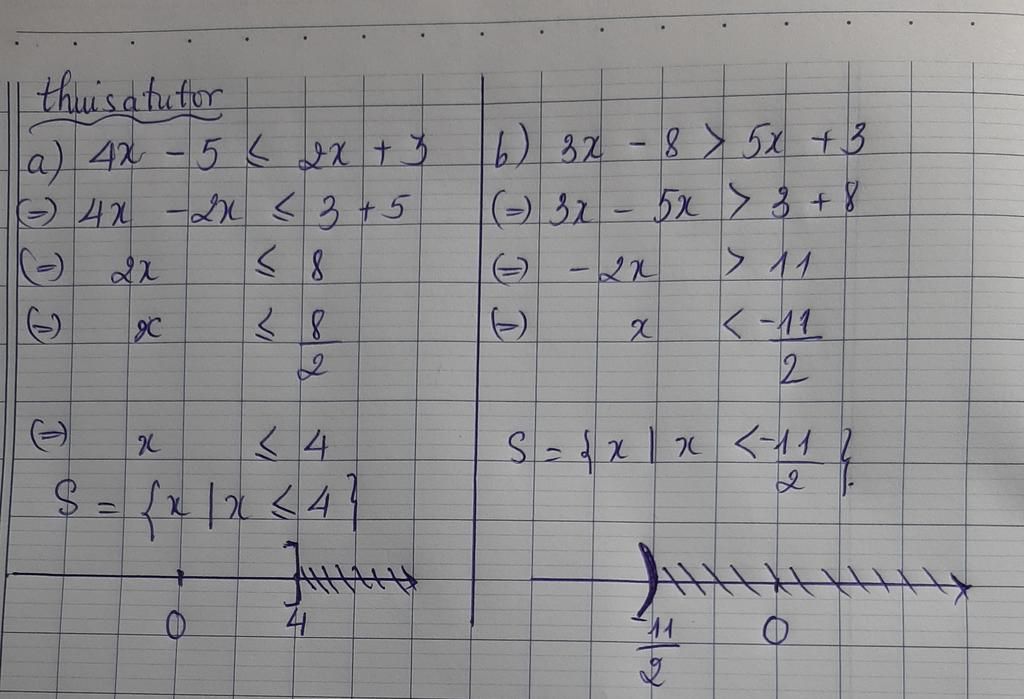 thuisatutor
a) 4x - 5 ≤ 2x + 3
(=) 4x - 2x ≤ 3 + 5
(=) 2x ≤ 8
(=) x ≤ 8/2
(=) x ≤ 4
S = {x | x ≤ 4}
0 4
b) 3x - 8 > 5x + 3
(=) 3x - 5x > 3 + 8
(=) -2x > 11
(=) x < -11/2
S = {x | x < -11/2}.
-11/2 0